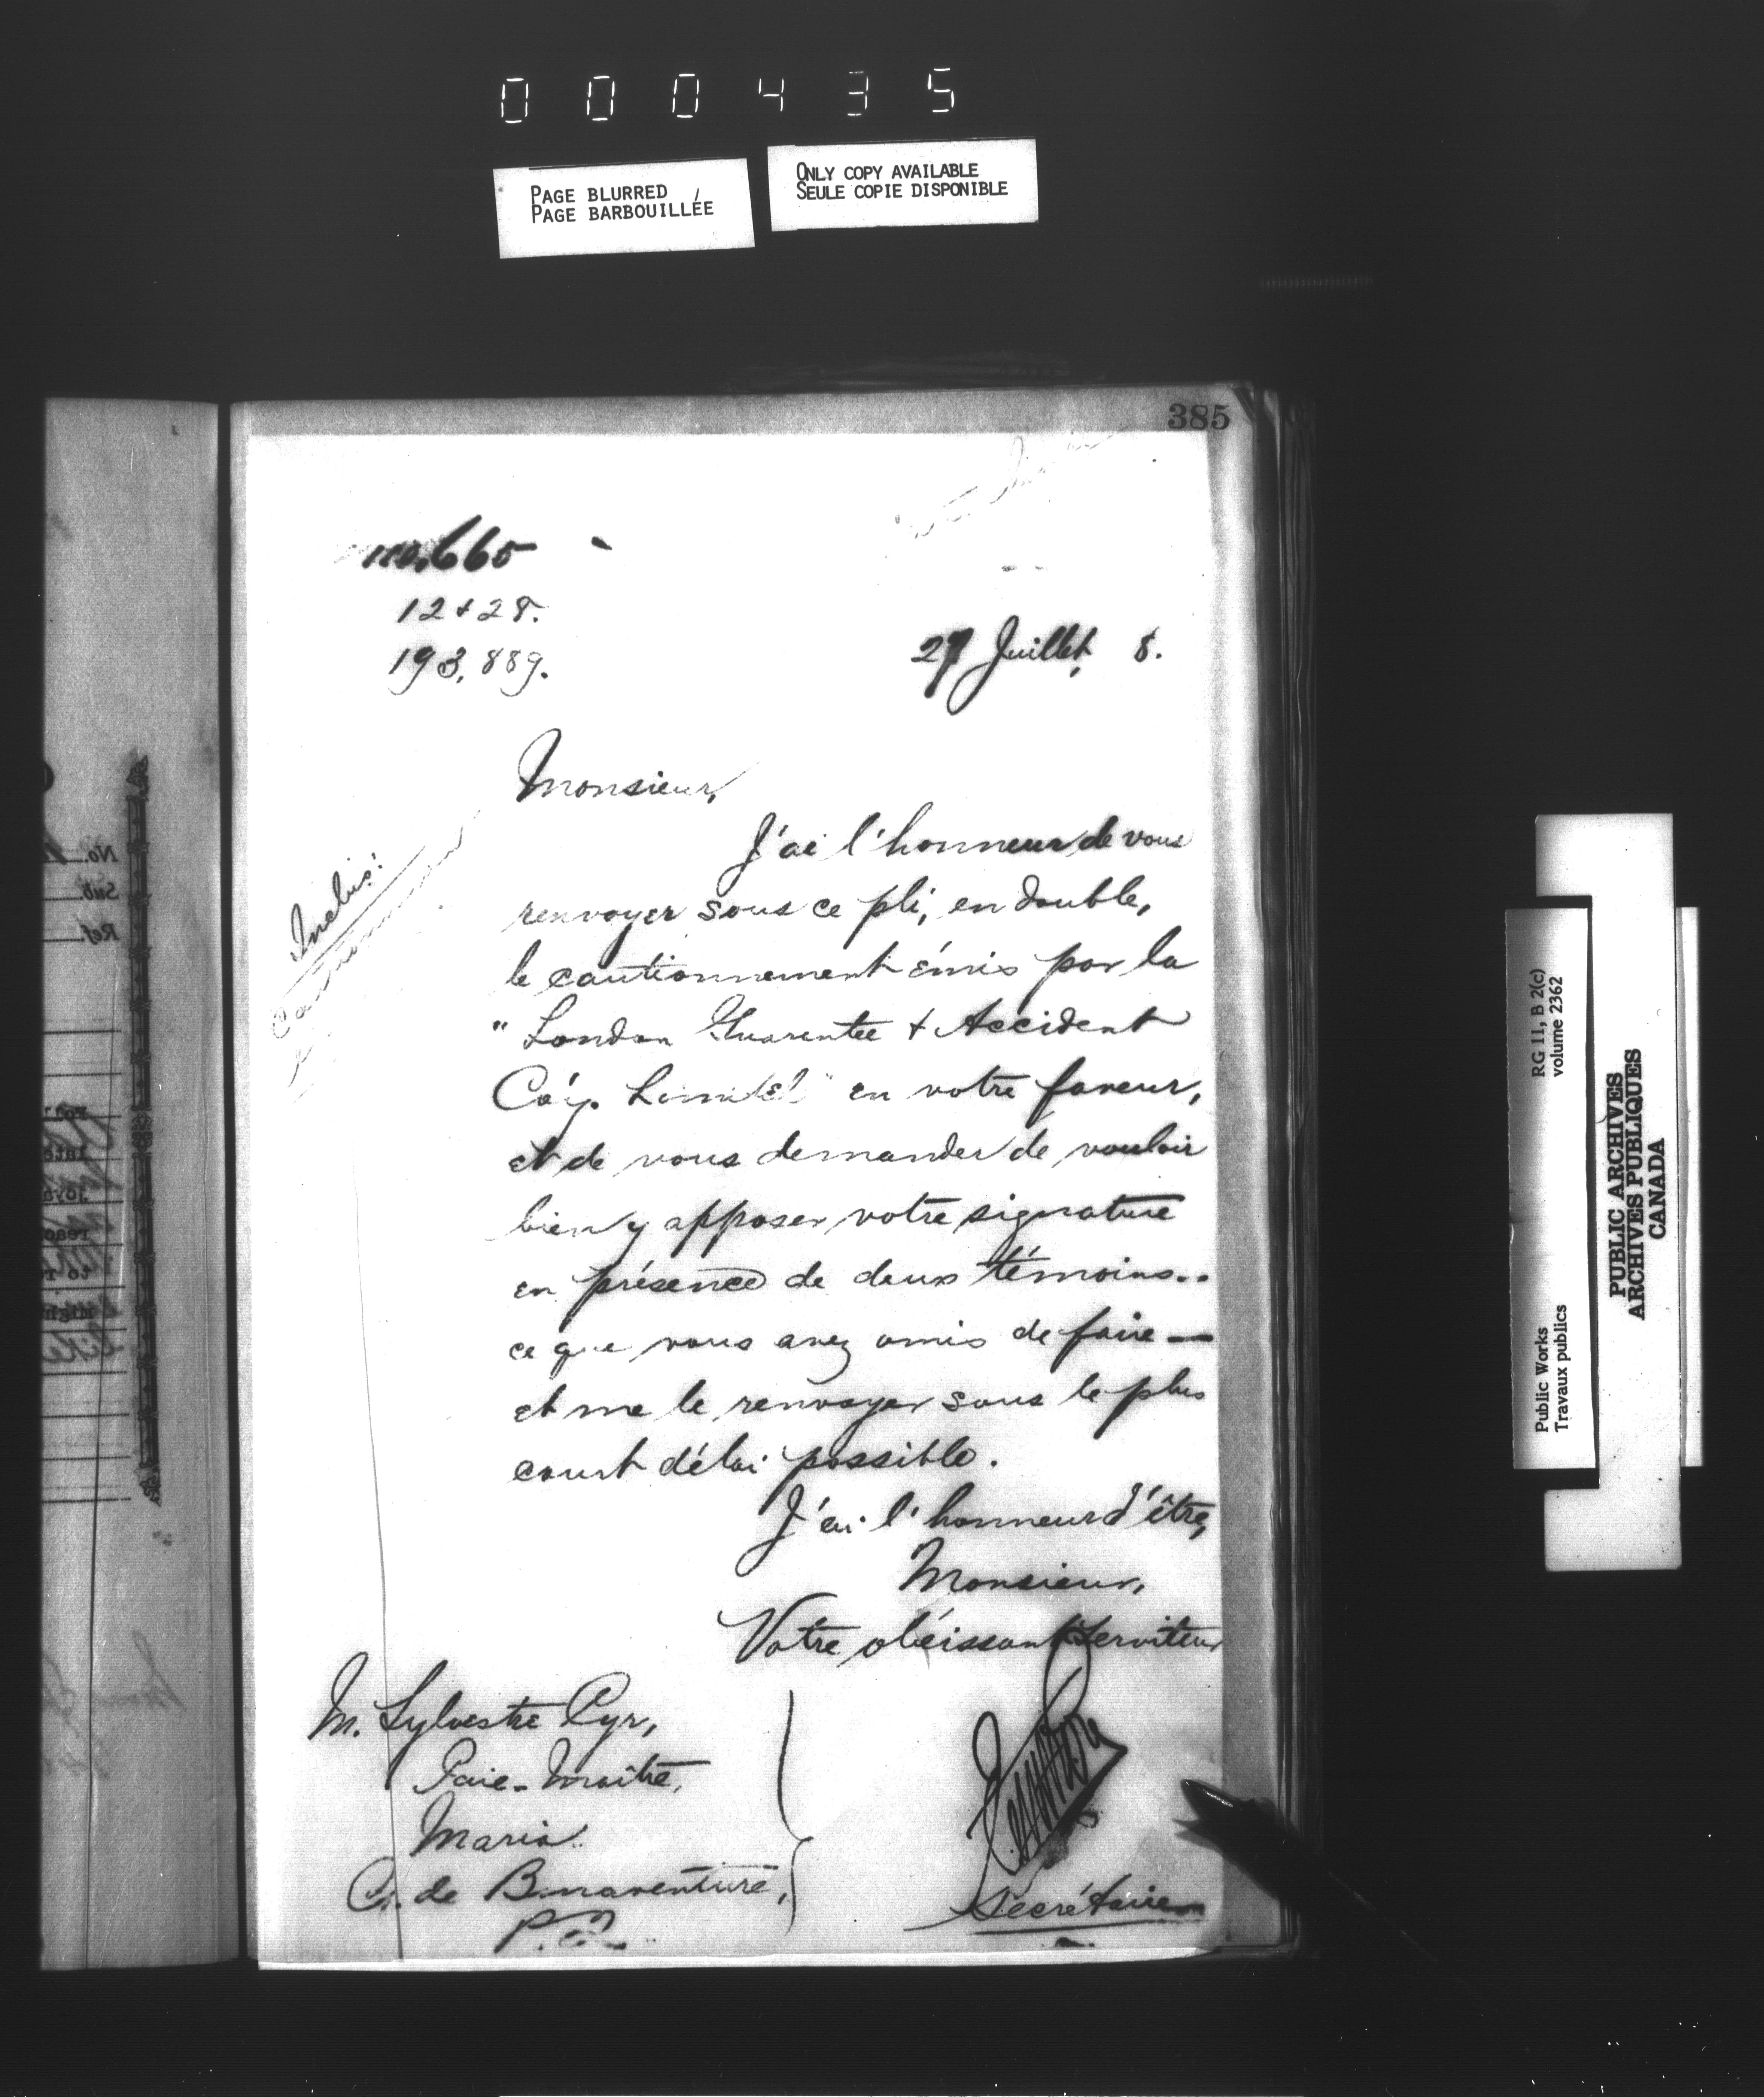 000435
PAGE BLURRED
PAGE BARBOUILLÉE
ONLY COPY AVAILABLE
SEULE COPIE DISPONIBLE
385
no. 665
12 + 28.
193,889.
27 Juillet, 8.
Monsieur,
Inclus:
Cautionnement
J'ai l'honneur de vous
renvoyer sous ce pli, en double,
le cautionnement émis par la
"London Guarantee + Accident
Co'y. Limited" en votre faveur,
et de vous demander de vouloir
bien y apposer votre signature
en présence de deux témoins..
ce que vous avez omis de faire —
et me le renvoyer sous le plus
court délai possible.
J'ai l'honneur d'être,
Monsieur,
Votre obéissant Serviteur
M. Sylvestre Cyr,
Paie-Maître,
Maria
Co. de Bonaventure,
P.Q.
Secrétaire
RG 11, B 2(c)
volume 2362
Public Works
Travaux publics
PUBLIC ARCHIVES
ARCHIVES PUBLIQUES
CANADA
No.
Sub.
Ref.